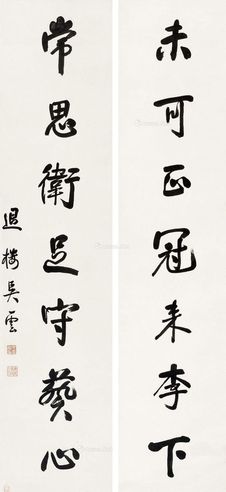 未可正冠来李下
常思衛足守葵心
退樓吳雲